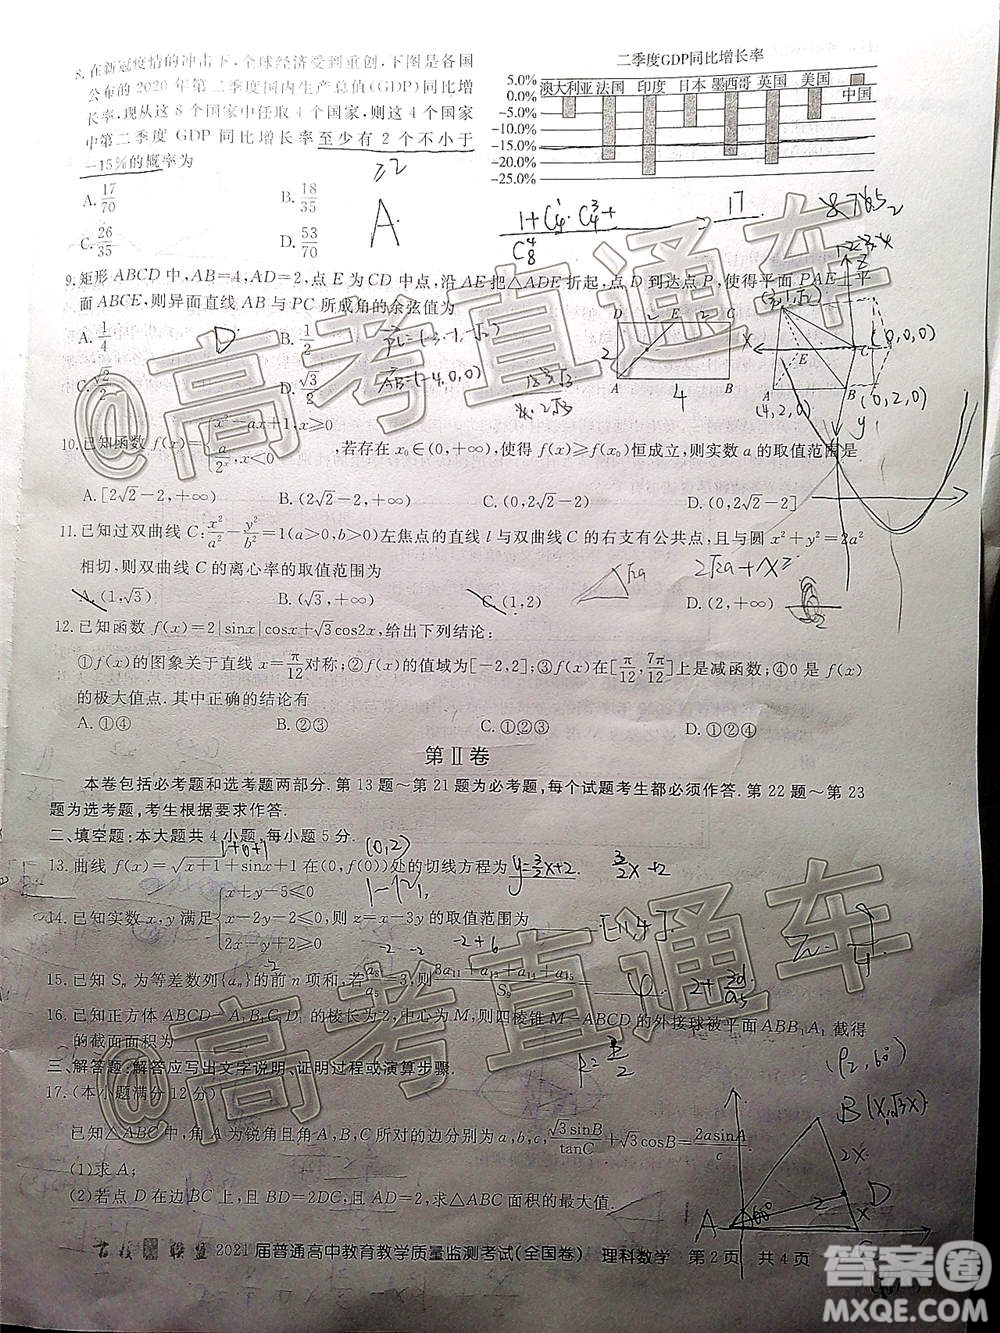 8.在新冠疫情的冲击下,全球经济受到重创,下图是各国
公布的 2020 年第二季度国内生产总值(GDP)同比增
长率,现从这 8 个国家中任取 4 个国家,则这 4 个国家
中第二季度 GDP 同比增长率至少有 2 个不小于
-15%的概率为
A. 17/70
B. 18/35
C. 26/35
D. 53/70
≥2
A.
二季度GDP同比增长率
5.0%
0.0%
-5.0%
-10.0%
-15.0%
-20.0%
-25.0%
澳大利亚 法国 印度 日本 墨西哥 英国 美国 中国
17
9.矩形 ABCD 中,AB=4,AD=2,点 E 为 CD 中点,沿 AE 把△ADE 折起,点 D 到达点 P,使得平面 PAE⊥平
面 ABCE,则异面直线 AB 与 PC 所成角的余弦值为
A. 1/4
B. 1/2
C. √2/2
D. √3/8
D
AB=(-4,0,0)
D E C
A B
2
4
(0,0,0)
(4,2,0)
(0,2,0)
10.已知函数 f(x)={x²-ax+1,x≥0
a/2ˣ,x<0
,若存在 x₀∈(0,+∞),使得 f(x)≥f(x₀)恒成立,则实数 a 的取值范围是
A.[2√2-2,+∞)
B.(2√2-2,+∞)
C.(0,2√2-2)
D.(0,2√2-2]
11.已知过双曲线 C:x²/a²-y²/b²=1(a>0,b>0)左焦点的直线 l 与双曲线 C 的右支有公共点,且与圆 x²+y²=2a²
相切,则双曲线 C 的离心率的取值范围为
A.(1,√3)
B.(√3,+∞)
C.(1,2)
D.(2,+∞)
12.已知函数 f(x)=2|sinx|cosx+√3cos2x,给出下列结论:
①f(x)的图象关于直线 x=π/12对称;②f(x)的值域为[-2,2];③f(x)在[π/12,7π/12]上是减函数;④0 是 f(x)
的极大值点.其中正确的结论有
A.①④
B.②③
C.①②③
D.①②④
第Ⅱ卷
本卷包括必考题和选考题两部分.第 13 题~第 21 题为必考题,每个试题考生都必须作答.第 22 题~第 23
题为选考题,考生根据要求作答.
二、填空题:本大题共 4 小题,每小题 5 分.
13.曲线 f(x)=√(x+1)+sinx+1 在(0,f(0))处的切线方程为 y=3/2x+2.
1+0+1
(0,2)
3/2x+2
14.已知实数 x,y 满足{x+y-5≤0
x-2y-2≤0
2x-y+2≥0
,则 z=x-3y 的取值范围为
15.已知 Sₙ 为等差数列{aₙ}的前 n 项和,若a₈/a₅=3,则(a₁₁+a₁₃+a₁₄+a₁₅)/S₉=
16.已知正方体 ABCD-A₁B₁C₁D₁ 的棱长为 2,中心为 M,则四棱锥 M-ABCD 的外接球被平面 ABB₁A₁ 截得
的截面面积为
三、解答题:解答应写出文字说明、证明过程或演算步骤.
17.(本小题满分 12 分)
已知△ABC 中,角 A 为锐角且角 A,B,C 所对的边分别为 a,b,c,√3sinB/tanC+√3cosB=2asinA/c
(1)求 A;
(2)若点 D 在边 BC 上,且 BD=2DC,且 AD=2,求△ABC 面积的最大值.
B(x,√3x)
2x
D
2
60°
A
联盟 2021 届普通高中教育教学质量监测考试(全国卷) 理科数学 第 2 页 共 4 页
@高考直通车
@高考直通车
答案圈
MXQE.COM